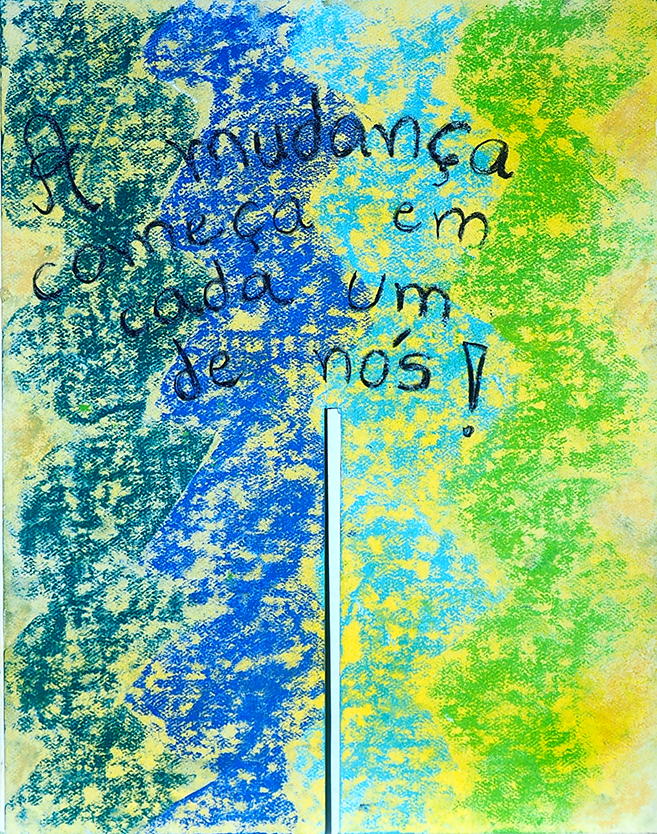 A mudança
começa em
cada um
de nós!